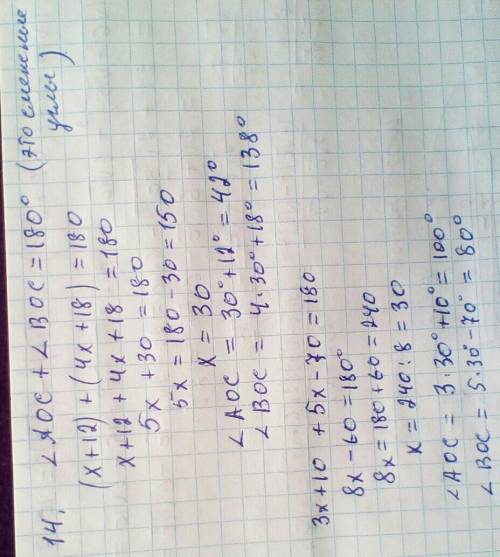 14. ∠AOC + ∠BOC = 180° (это смежные
углы)
(x+12) + (4x+18) = 180
x+12 + 4x+18 = 180
5x +30 = 180
5x = 180 - 30 = 150
x = 30
∠AOC = 30°+12° = 42°
∠BOC = 4·30°+18° = 138°
3x+10 +5x-70 = 180
8x -60 = 180°
8x = 180+60 = 240
x = 240:8 = 30
∠AOC = 3·30°+10° = 100°
∠BOC = 5·30°-70° = 80°